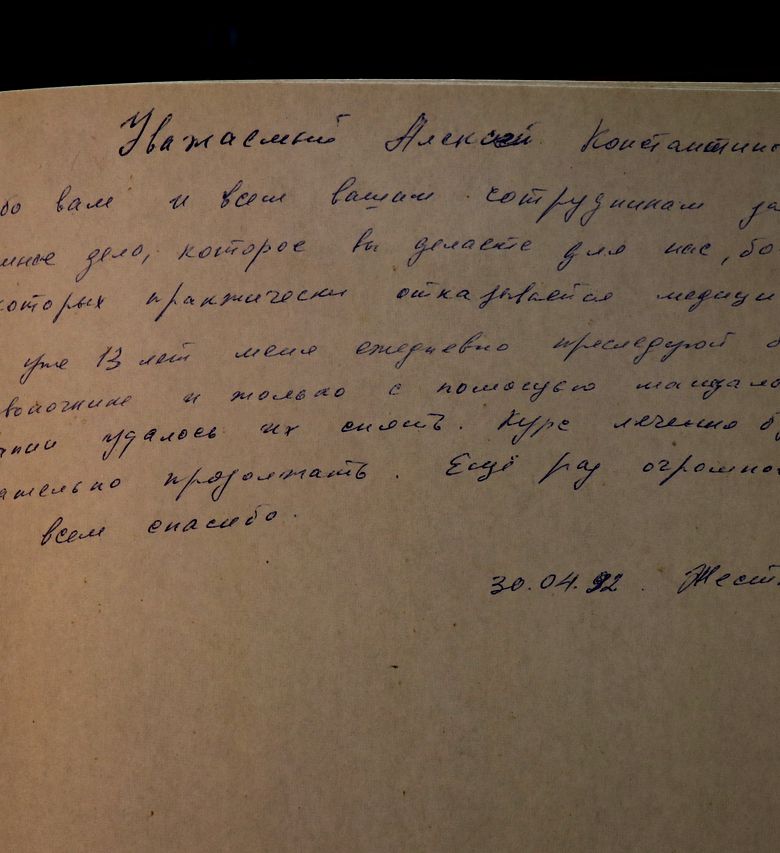 Уважаемый Алексей Константино
бо вам и всем вашим сотрудникам за
мное дело, которое вы делаете для нас, бо
которых практически отказывается медици
уже 13 лет меня ежедневно преследуют б
звоночнике и только с помощью
удалось их снять. Курс лечения бу
ательно продолжать. Ещё раз огромно
всем спасибо.
30.04.92. Жест